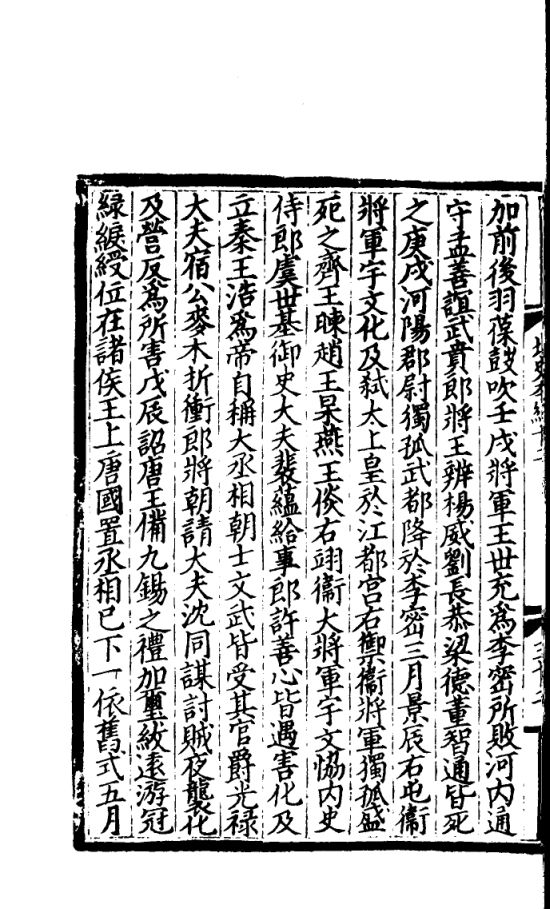 加前後羽葆鼓吹壬戌將軍王世充爲李密所敗河内通
守孟善誼武賁郎將王辨楊威劉長恭梁德董智通皆死
之庚戌河陽郡尉獨孤武都降於李密三月景辰右屯衞
將軍宇文化及弑太上皇於江都宫右禦衞將軍獨孤盛
死之齊王暕趙王杲燕王倓右翊衞大將軍宇文協内史
侍郎虞世基御史大夫裴藴給事郎許善心皆遇害化及
立秦王浩爲帝自稱大丞相朝士文武皆受其官爵光禄
大夫宿公麥木折衝郎將朝請大夫沈同謀討賊夜襲化
及營反爲所害戊辰詔唐王備九錫之禮加璽紱遠游冠
緑綟綬位在諸侯王上唐國置丞相已下一依舊式五月